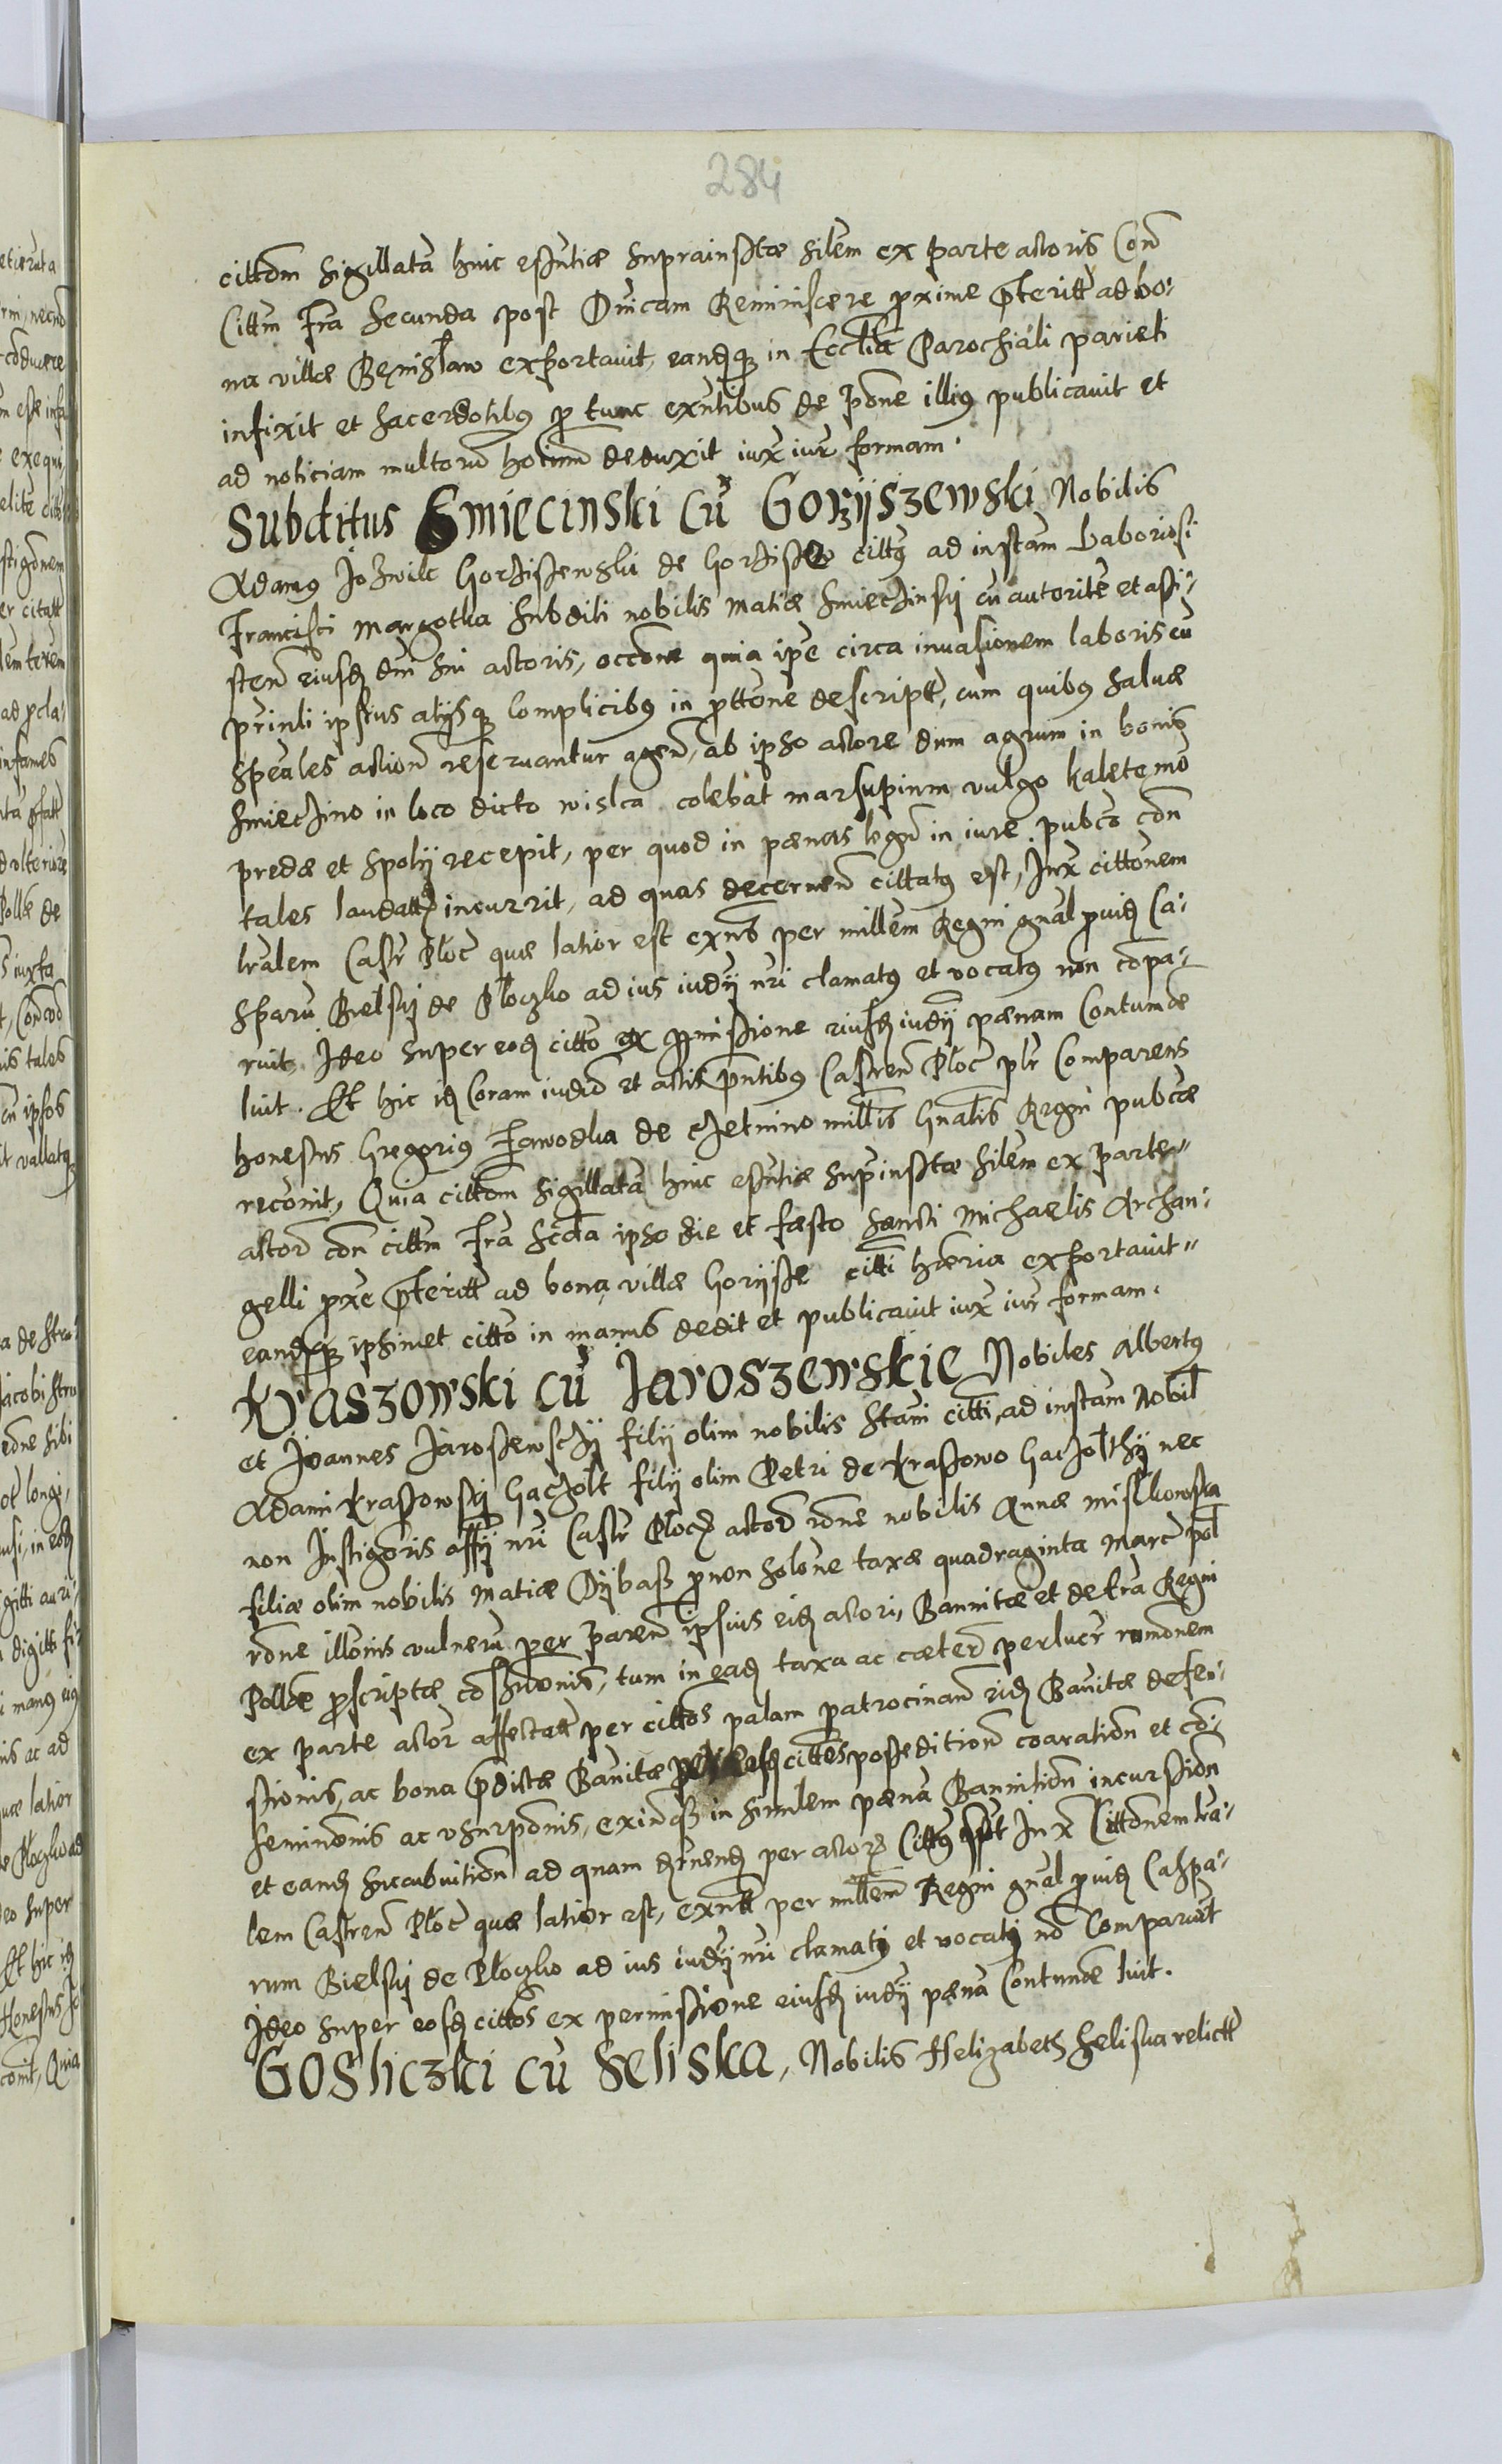 284
cittom sigillatam huic essentiae suprainsertae silem ex parte actoris Con
Cittm Fra secunda post Dnicam Reminiscere proxime pterit ad bo-
na villae Bromislaw exportavit, eandq in Ecclia Parochiali parieti
infixit et sacerdotibus pro tunc exntibus de pone illius publicavit et
ad noticiam multoru hoium deduxit iux iur formam.
Subditus Smiecinski cu Gorzijszewski Nobilis
Adamus Jozwik Gorzissewski de Gorzisse cittus ad instam Laboriosi
Francisci Margotka subditi nobilis Matiae Smieczinskij cu autorite et assi-
sten eiusd dni sui actoris, occone quia ipe circa invasionem laboris cu
printi ipsius alijsq complicibus in pttone descriptt, cum quibus salvae
speales action reservantur agen, ab ipso actore dum agrum in bonis
Smieczino in loco dicto wislca colebat marsupium vulgo kalete mo
predae et spolij recepit, per quod in paenas legu in iure pubco con
tales laudatt incurrit, ad quas decernen cittatus est, Jux cittonem
lralem Castr Ploc quae latior est exns per millem Regni gnal puid Ca-
sparu Bielskij de Ploczko ad ius iudij nri clamatus et vocatus non compa-
ruit, Ideo super eod citto ex pmissione eiusd iudij paenam Contumae
luit. Et hic id Coram iudio et actis pntibus Castren Ploc plr Comparens
honestus Gregorius Fawodka de Czetnino mllis Gnalis Regni pubcae
reconit, Quia cittom sigillata huic essntiae supinsertae silem ex parte
actor con cittm Fra scda ipso die et faesto Sancti Michaelis Archan-
gelli pxe pteritt ad bona villae Gorijsse citti haeria exportavit
eandq ipsimet citto in manus dedit et publicavit iux iur formam.
Kraszowski cu Jaroszewskie Nobiles Albertus
et Joannes Jarossewsczij filij olim nobilis Stani citti, ad instam Nobil
Adami Krassowskij Gaczolt filij olim Petri de Krassowo Gaczolthij nec
non Instigoris offij nri Castr Ploc actor rone nobilis Annae Misskowska
filiae olim nobilis Matiae Dijbass pnon solone taxae quadraginta Marc pol
rone illonis vulneru per paren ipsius eid actori, Bannitae et de tra Regni
Pollae pscriptae consuonis, tum in ead taxa ac caeter perlucr rumonem
ex parte actor affectatt per cittos palam patrocinan eid Banitae defen-
sionis, ac bona pdictae Banitae cittos possedition coaration et con-
seminonis ac vsurponis, exindq in similem paena Bannition incursion
et eand succubuition ad quam drnend per actor Cittus Jux Cittonem lra-
lem Castren Ploc quae latior est, exntt per millem Regni gnal puid Caspa-
rum Bielskij de Ploczko ad ius iudij nri clamati et vocati no Comparuit
Ideo super eosd cittos ex permissione eiusd iudij paena Contumae luit.
Gosliczki cu Seliska, Nobilis Helizabeth Seliska relictt